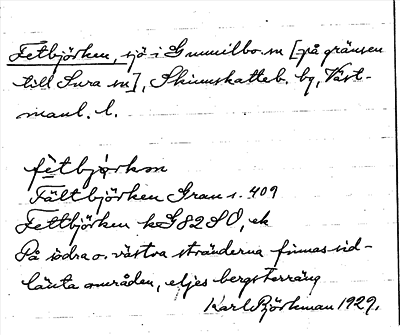 Fetbjörken, sjö i Gunnilbo sn [på gränsen
till Sura sn], Skinnskatteb. bg, Väst-
manl. l.
fètbjö̀rkɷn
Fältbjörken Gran s. 409
Fettbjörken kG 82 SO, ek
På södra o. västra stränderna finnas sid-
länta områden, eljes bergsterräng
Karl Björkman 1929.